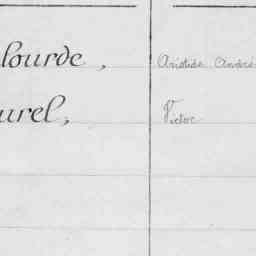 lourde, Aristide André
urel, Victor